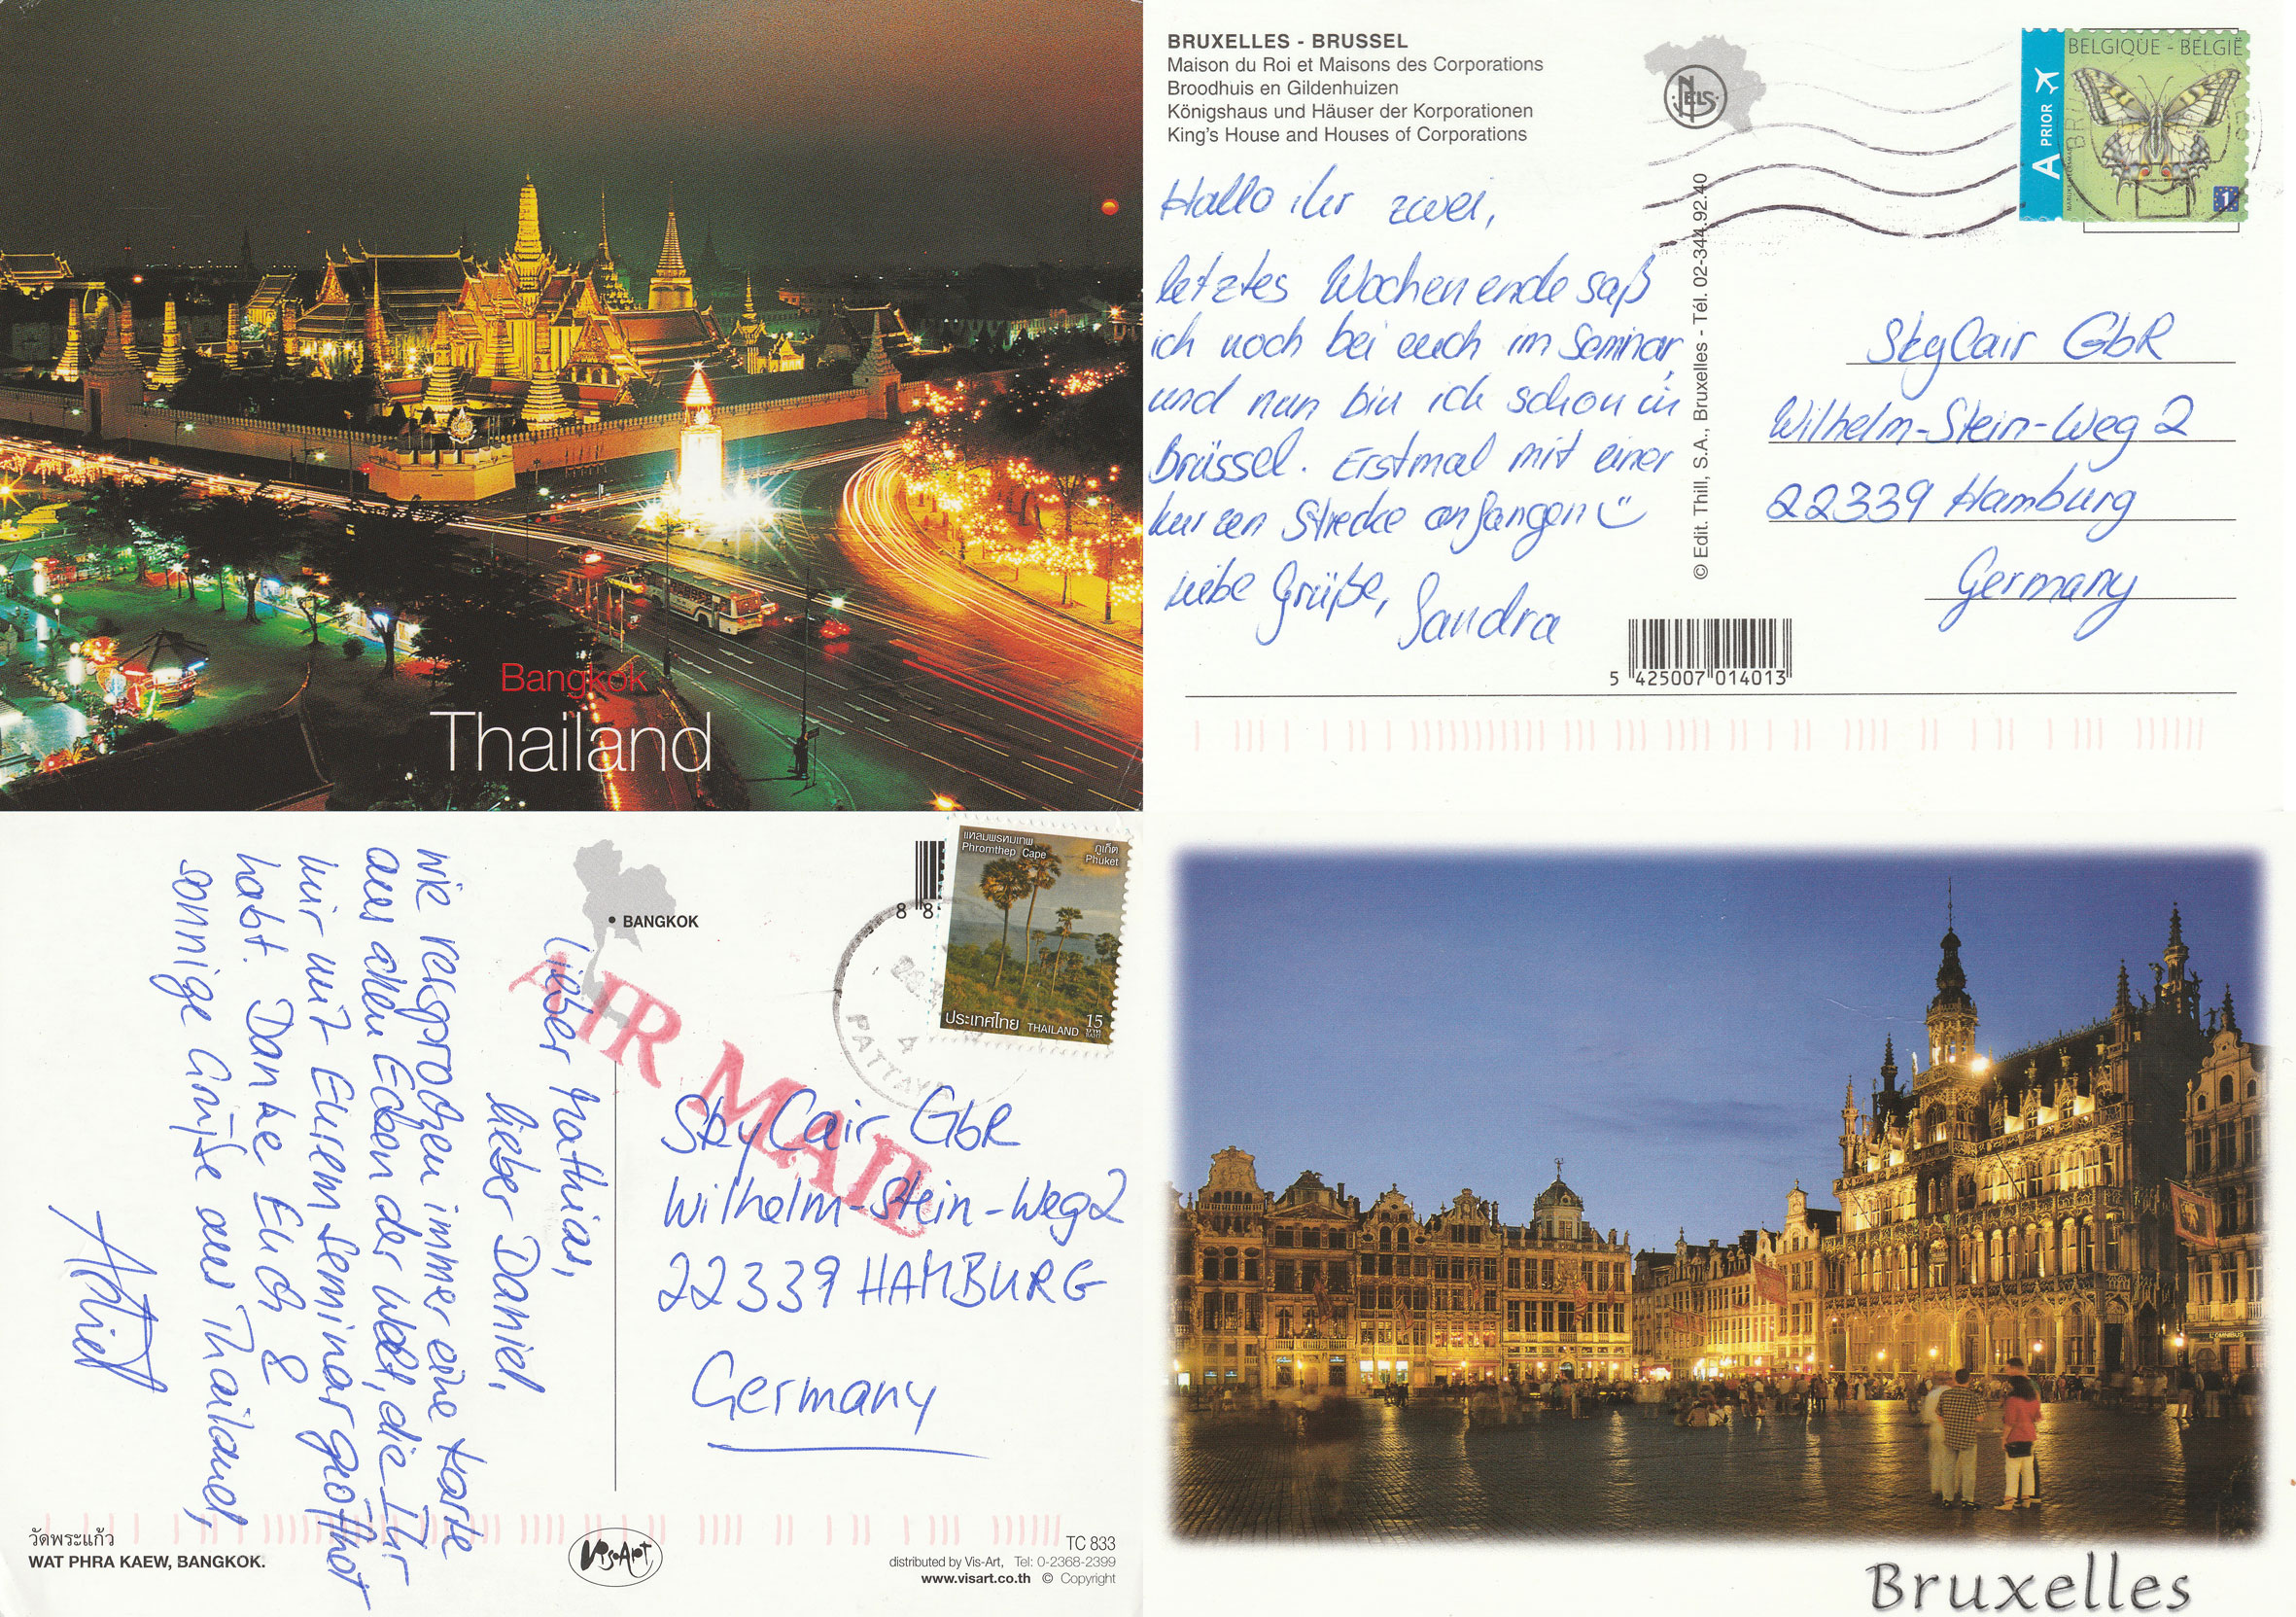 Bangkok
Thailand
BRUXELLES - BRUSSEL
Maison du Roi et Maisons des Corporations
Broodhuis en Gildenhuizen
Königshaus und Häuser der Korporationen
King's House and Houses of Corporations
NELS
BELGIQUE - BELGIË
A PRIOR
1
Hallo ihr zwei,
letztes Wochenende saß
ich noch bei euch im Seminar,
und nun bin ich schon in
Brüssel. Erstmal mit einer
kurzen Strecke anfangen
Liebe Grüße, Sandra
© Edit. Thill, S.A., Bruxelles - Tél. 02-344.92.40
SkyCair GbR
Wilhelm-Stein-Weg 2
22339 Hamburg
Germany
5 425007 014013
BANGKOK
8 8
แหลมพรหมเทพ
Phromthep Cape
ภูเก็ต
Phuket
ประเทศไทย THAILAND 15
บาท
PATTAYA
AIR MAIL
Lieber Mathias,
lieber Daniel,
wie versprochen immer eine Karte
aus allen Ecken der Welt, die Ihr
mir mit Eurem Seminar geöffnet
habt. Danke Euch &
sonnige Grüße aus Thailand,
SkyCair GbR
Wilhelm-Stein-Weg 2
22339 HAMBURG
Germany
วัดพระแก้ว
WAT PHRA KAEW, BANGKOK.
Vis-Art
TC 833
distributed by Vis-Art, Tel: 0-2368-2399
www.visart.co.th © Copyright
L'OMNIBUS
Bruxelles